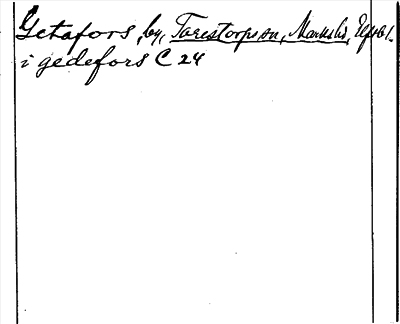 Getafors, by, Tarestorps sn, Marks hd, Elfsb l.
i gedefors C 24